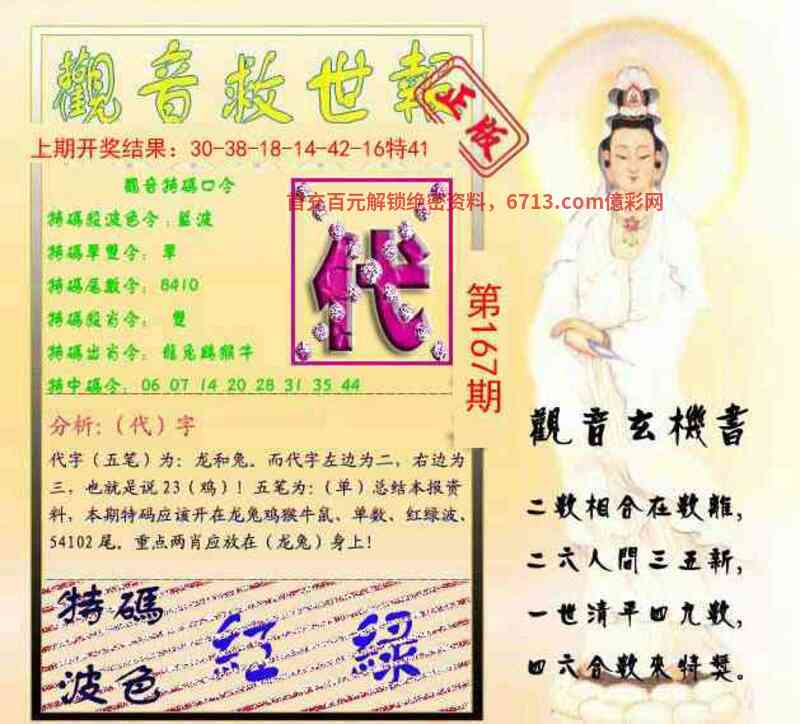 觀音救世報
正版
上期开奖结果：30-38-18-14-42-16特41
觀音特碼口令
首充百元解锁绝密资料，6713.com億彩网
特碼殺波色令：藍波
特碼單雙令：單
特碼尾數令：8410
特碼殺肖令：雙
特碼出肖令：龍兔鷄猴牛
特中碼令：06 07 14 20 28 31 35 44
代
第167期
分析:（代）字
代字（五笔）为：龙和兔。而代字左边为二，右边为
三，也就是说23（鸡）！五笔为:（单）总结本报资
料，本期特码应该开在龙兔鸡猴牛鼠、单数、红绿波、
54102尾。重点两肖应放在（龙兔）身上!
特碼
波色
紅 綠
觀音玄機書
二數相合在數離，
二六人間三五新，
一世清平四九數，
四六合數來特獎。